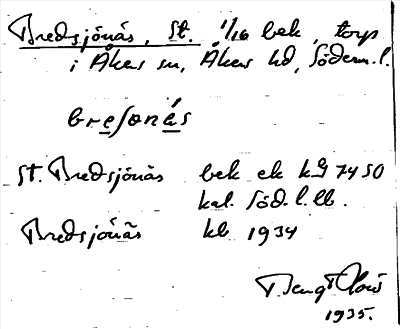 Bredsjönäs, St. 1/16 bek, torp
i Åkers sn, Åkers hd, Söderm. l.
bresonás
St. Bredsjönäs bek ek kg 7450
kal. Söd. l. lb.
Bredsjönäs kb 1934
Bengt
1935.